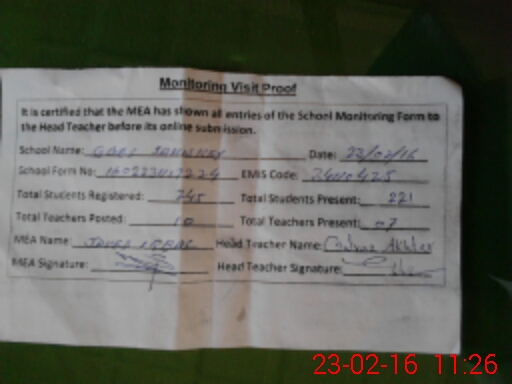 Monitoring Visit Proof
It is certified that the MEA has shown all entries of the School Monitoring Form to
the Head Teacher before its online submission.
School Name: Date: 23/02/16
School Form No: EMIS Code:
Total Students Registered: 245 Total Students Present: 221
Total Teachers Posted: 10 Total Teachers Present: 07
MEA Name: Head Teacher Name: Akhtar
MEA Signature: Head Teacher Signature:
23-02-16 11:26